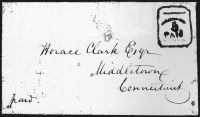 5
PAID
Horace Clark Esqr
Middletown
Connecticut
paid.